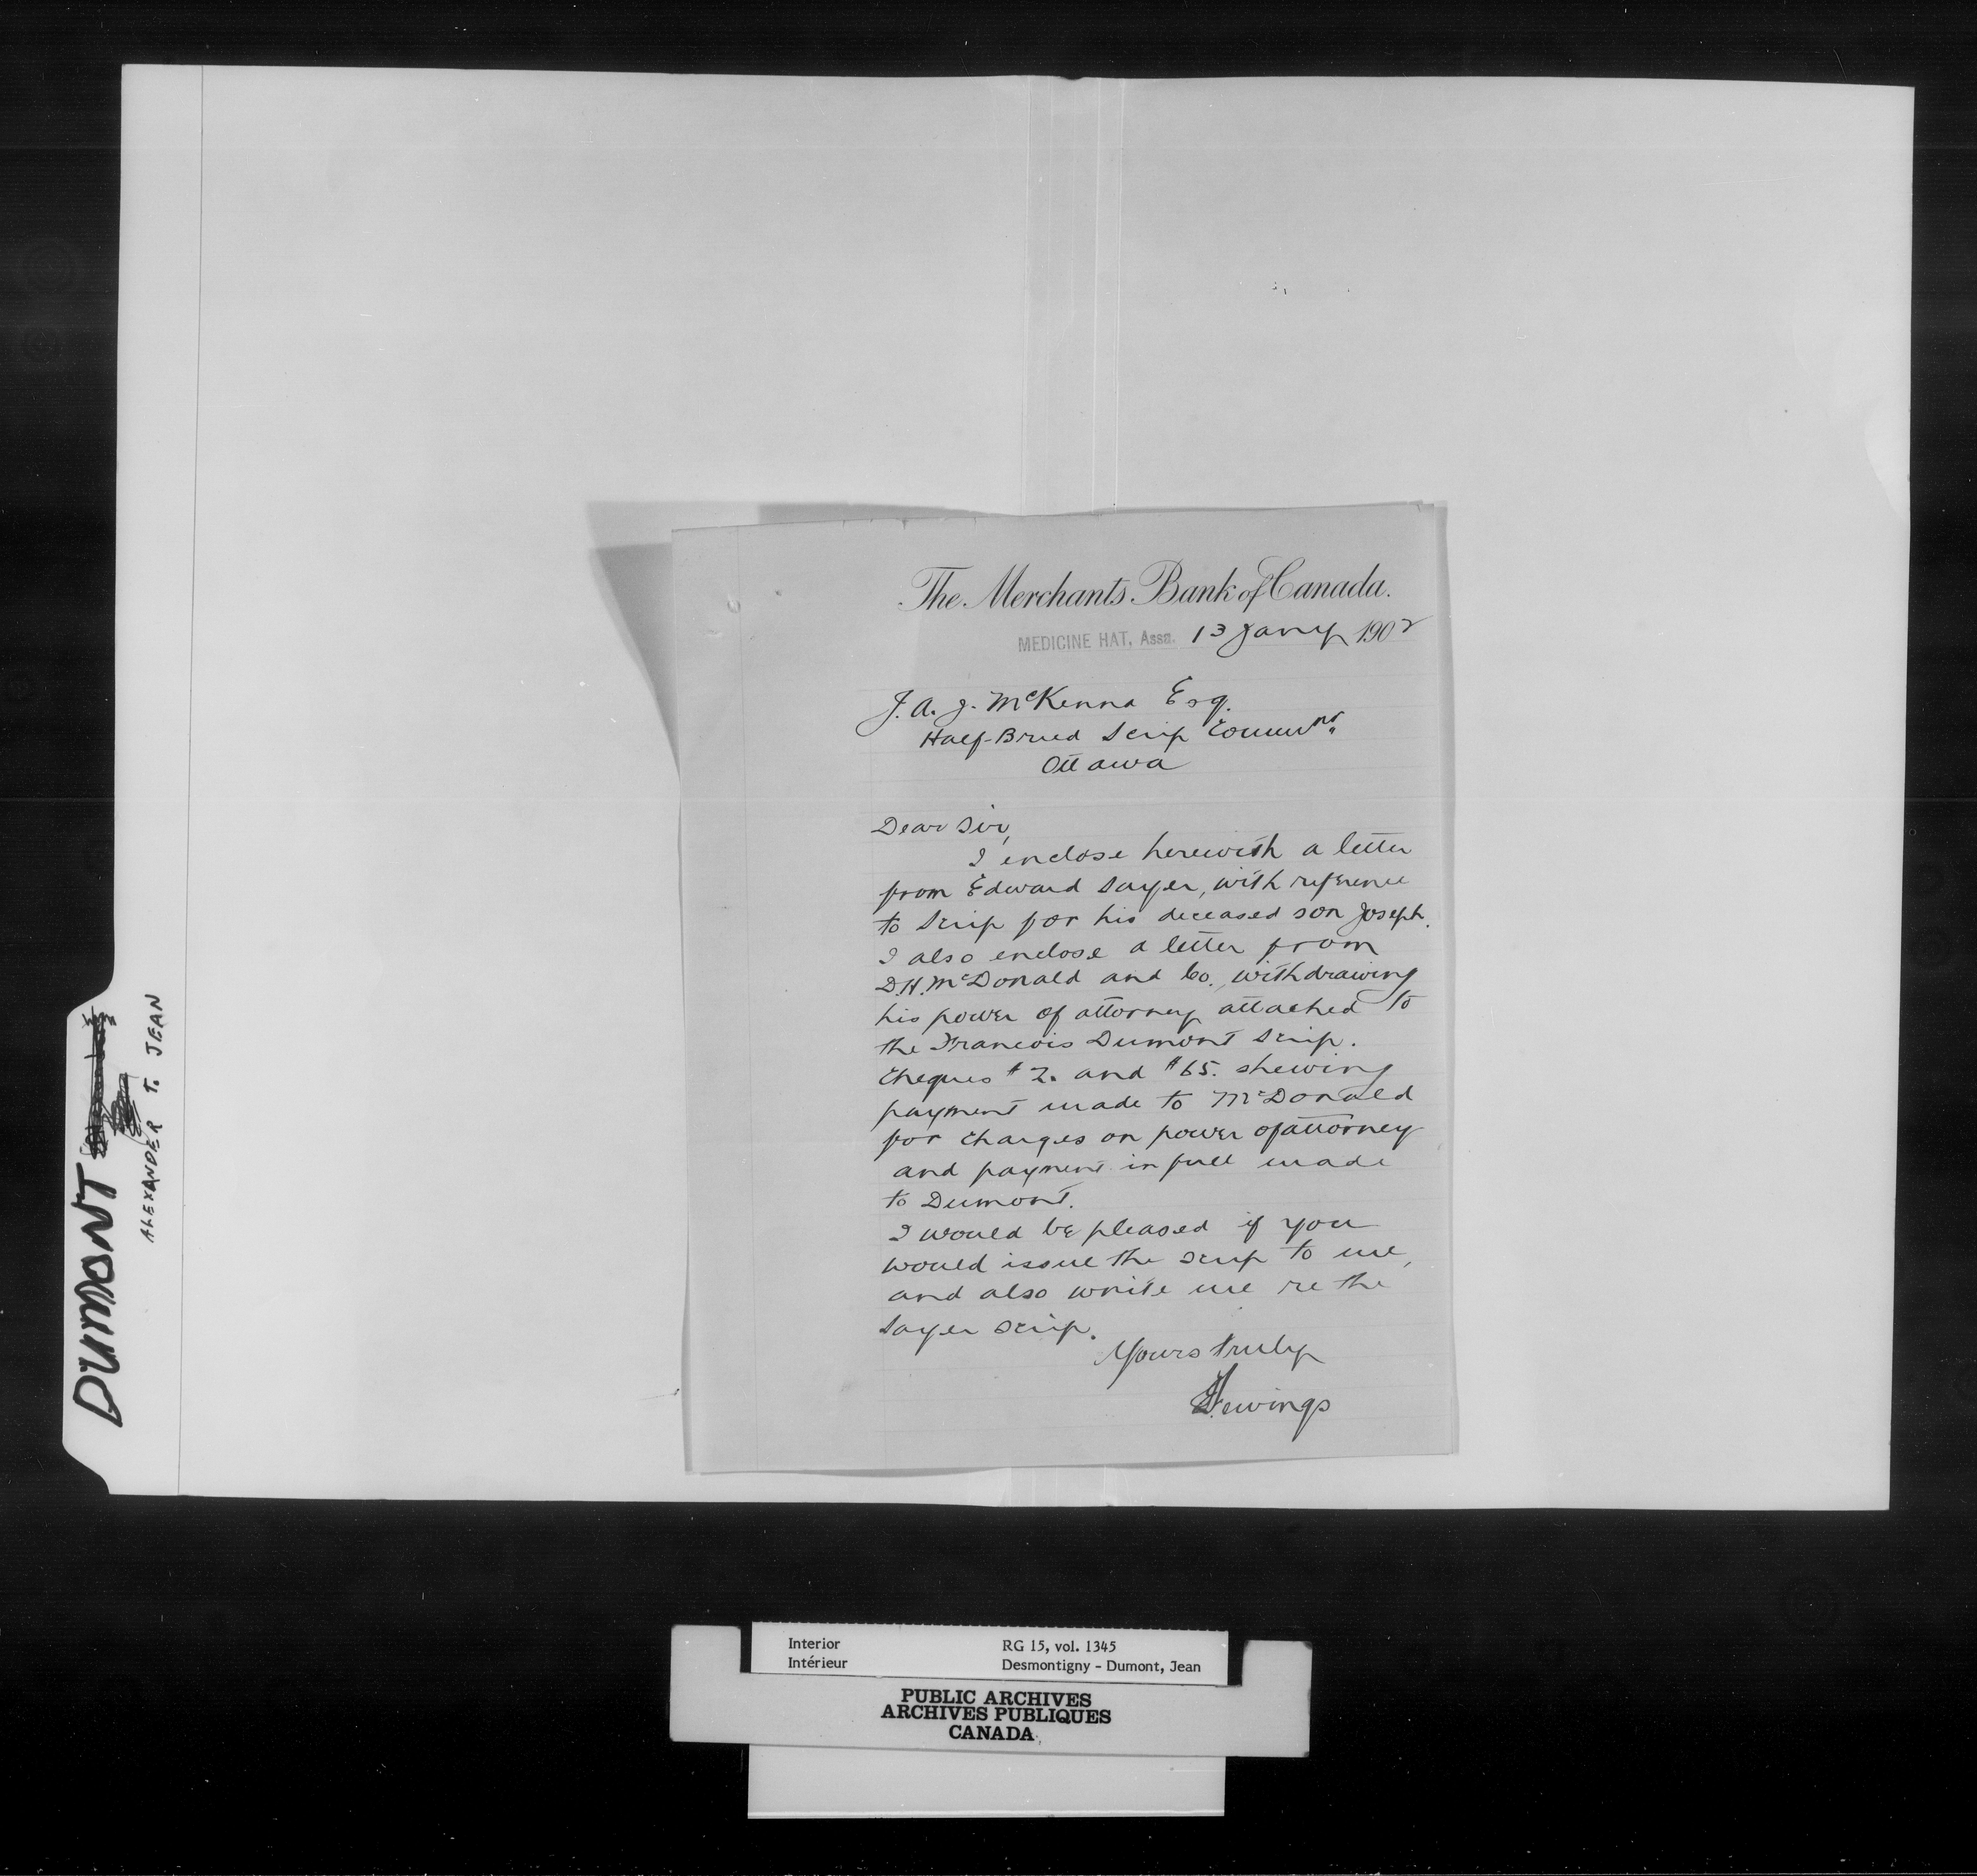 The Merchants Bank of Canada.
MEDICINE HAT, Assa. 13 Jany 1902
J. A. J. McKenna Esq.
Half-Breed Scrip Commnr.
Ottawa
Dear Sir,
I enclose herewith a letter
from Edward Sayer, with reference
to Scrip for his deceased son Joseph.
I also enclose a letter from
D.H. McDonald and Co., withdrawing
his power of attorney attached to
the Francois Dumont Scrip.
Cheques # 2. and # 65. shewing
payment made to McDonald
for charges on power of attorney
and payment in full made
to Dumont.
I would be pleased if you
would issue the scrip to me,
and also write me re the
Sayer scrip.
Yours truly
DUMONT
ALEXANDER T. JEAN
Interior
Intérieur
RG 15, vol. 1345
Desmontigny - Dumont, Jean
PUBLIC ARCHIVES
ARCHIVES PUBLIQUES
CANADA